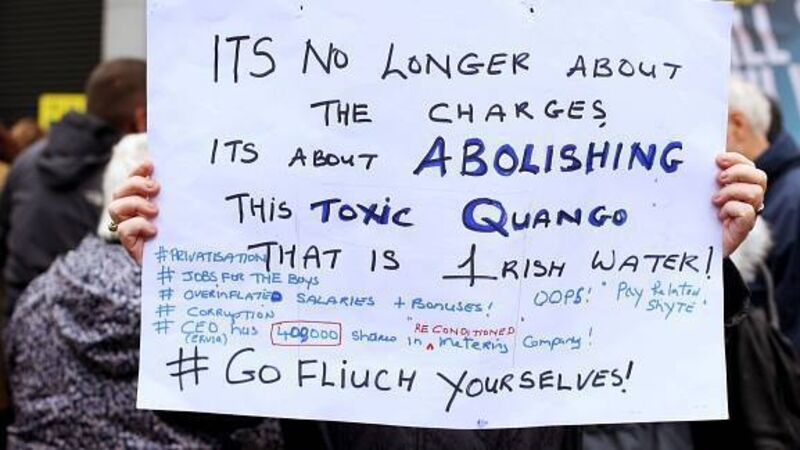 ITS NO LONGER ABOUT
THE CHARGES
ITS ABOUT ABOLISHING
THIS TOXIC QUANGO
THAT IS IRISH WATER!
#PRIVATISATION
# JOBS FOR THE BOYS
# OVERINFLATED SALARIES + BONUSES! OOPS! "Pay Related Shyte"
# CORRUPTION
# CEO has 409000 shares in "RE CONDITIONED" metering Company!
(ERVIA)
# GO FLIUCH YOURSELVES!